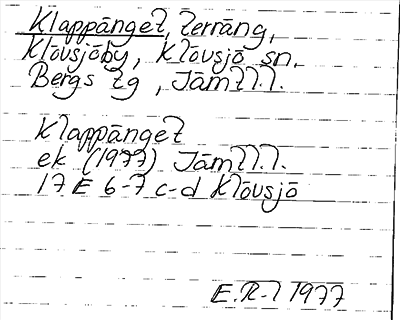 Klappänget, terräng,
Klövsjöby, Klövsjö sn.
Bergs tg, Jämtl.l.
Klappänget
ek (1977) Jämtl.l.
17 E 6-7 c-d Klövsjö
E.R-l 1977